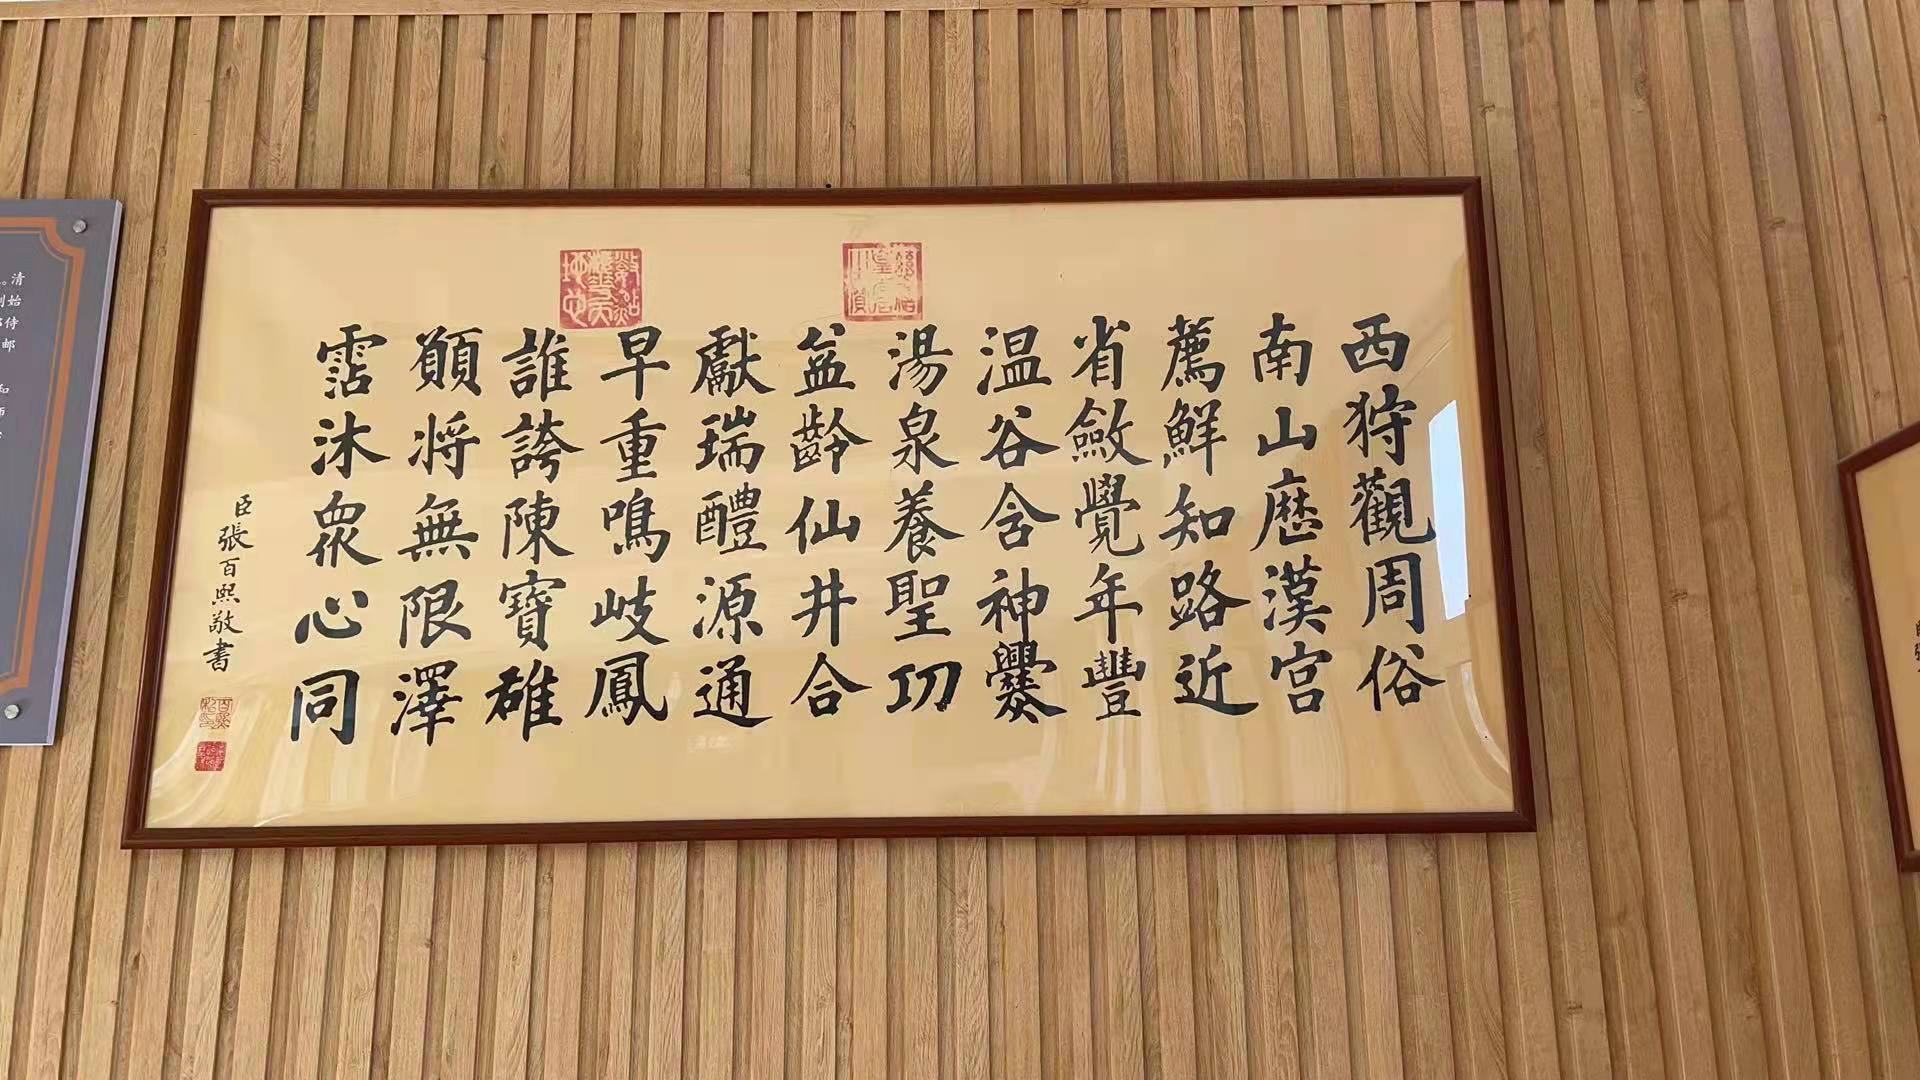 西狩觀周俗
南山歷漢宮
薦鮮知路近
省斂覺年豐
温谷含神爨
湯泉養聖功
益齡仙井合
獻瑞醴源通
早重鳴岐鳳
誰誇陳寶雄
願將無限澤
霑沐衆心同
臣張百熙敬書
清
始
侍
邮